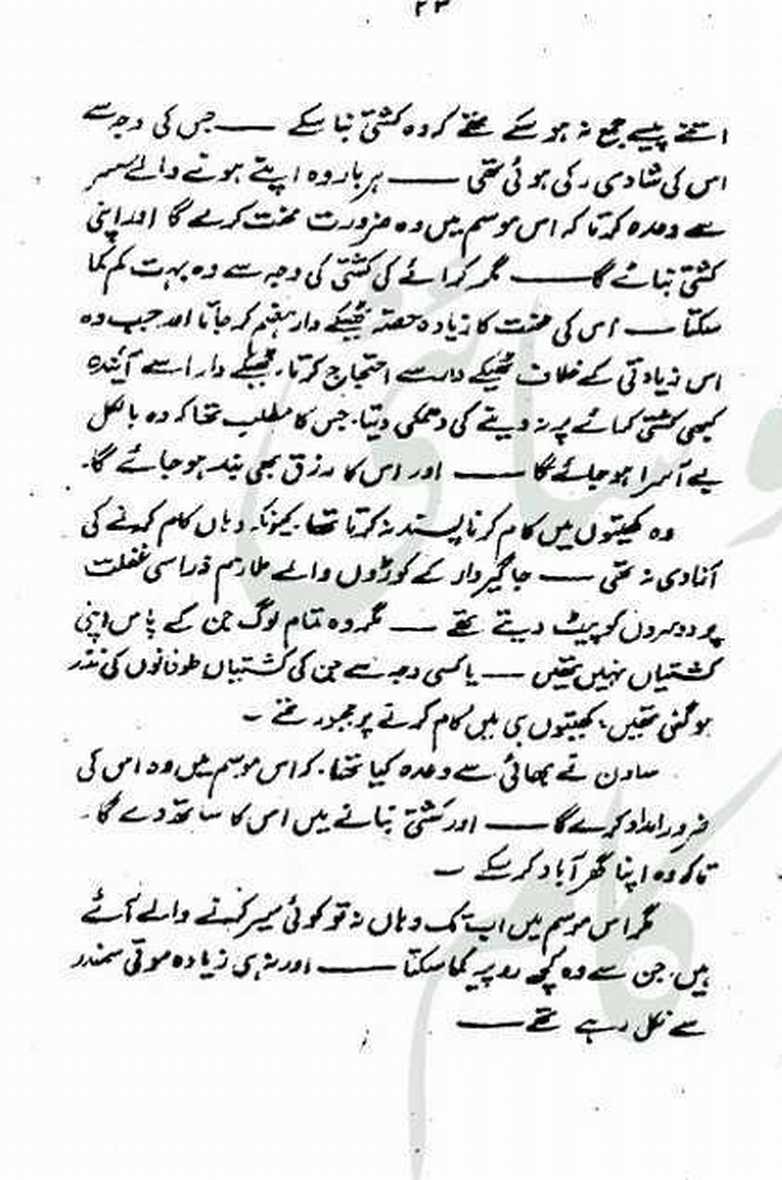 ۲۳
اتنے پیسے جمع نہ ہو سکے تھے کہ وہ کشتی بنا سکے ــــ جس کی وجہ سے
اس کی شادی رکی ہوئی تھی ــــ ہر بار وہ اپنے ہونے والے سسر
سے وعدہ کرتا کہ اس موسم میں وہ ضرورت محنت کرے گا اور اپنی
کشتی بنائے گا ــــ مگر کرائے کی کشتی کی وجہ سے وہ بہت کم کما
سکتا ــــ اس کی محنت کا زیادہ حصہ ٹھیکے دار ہضم کر جاتا اور جب وہ
اس زیادتی کے خلاف ٹھیکے دار سے احتجاج کرتا۔ ٹھیکے دار اسے آئندہ
کبھی کشتی کرائے پر نہ دینے کی دھمکی دیتا۔ جس کا مطلب تھا کہ وہ بالکل
بے آسرا ہو جائے گا ــــ اور اس کا رزق بھی بند ہو جائے گا۔
وہ کھیتوں میں کام کرنا پسند نہ کرتا تھا۔ کیونکہ وہاں کام کرنے کی
آزادی نہ تھی ــــ جاگیردار کے کوڑوں والے ملازم ذرا سی غفلت
پر دوسروں کو پیٹ دیتے تھے ــــ مگر وہ تمام لوگ جن کے پاس اپنی
کشتیاں نہیں تھیں ــــ یا کسی وجہ سے جن کی کشتیاں طوفانوں کی نذر
ہو گئی تھیں، کھیتوں ہی میں کام کرنے پر مجبور تھے ۔
ساون نے بھائی سے وعدہ کیا تھا۔ کہ اس موسم میں وہ اس کی
ضرور امداد کرے گا ــــ اور کشتی بنانے میں اس کا ساتھ دے گا۔
تاکہ وہ اپنا گھر آباد کر سکے ۔
مگر اس موسم میں اب تک وہاں نہ تو کوئی سیر کرنے والے آئے
ہیں، جن سے وہ کچھ روپیہ کما سکتا ــــ اور نہ ہی زیادہ موتی سمندر
سے نکل رہے تھے ــــ
وسائی
کام